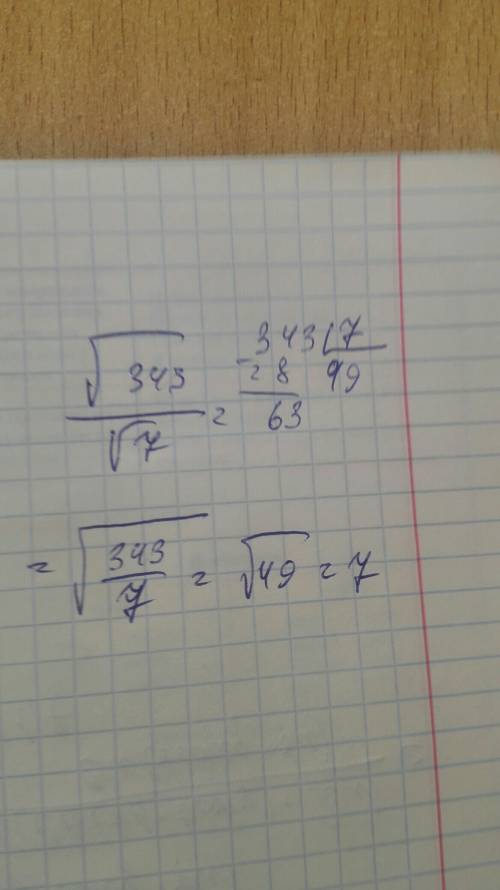 √343 / √7 =
343 | 7
- 28 | 49
63
= √(343/7) = √49 = 7